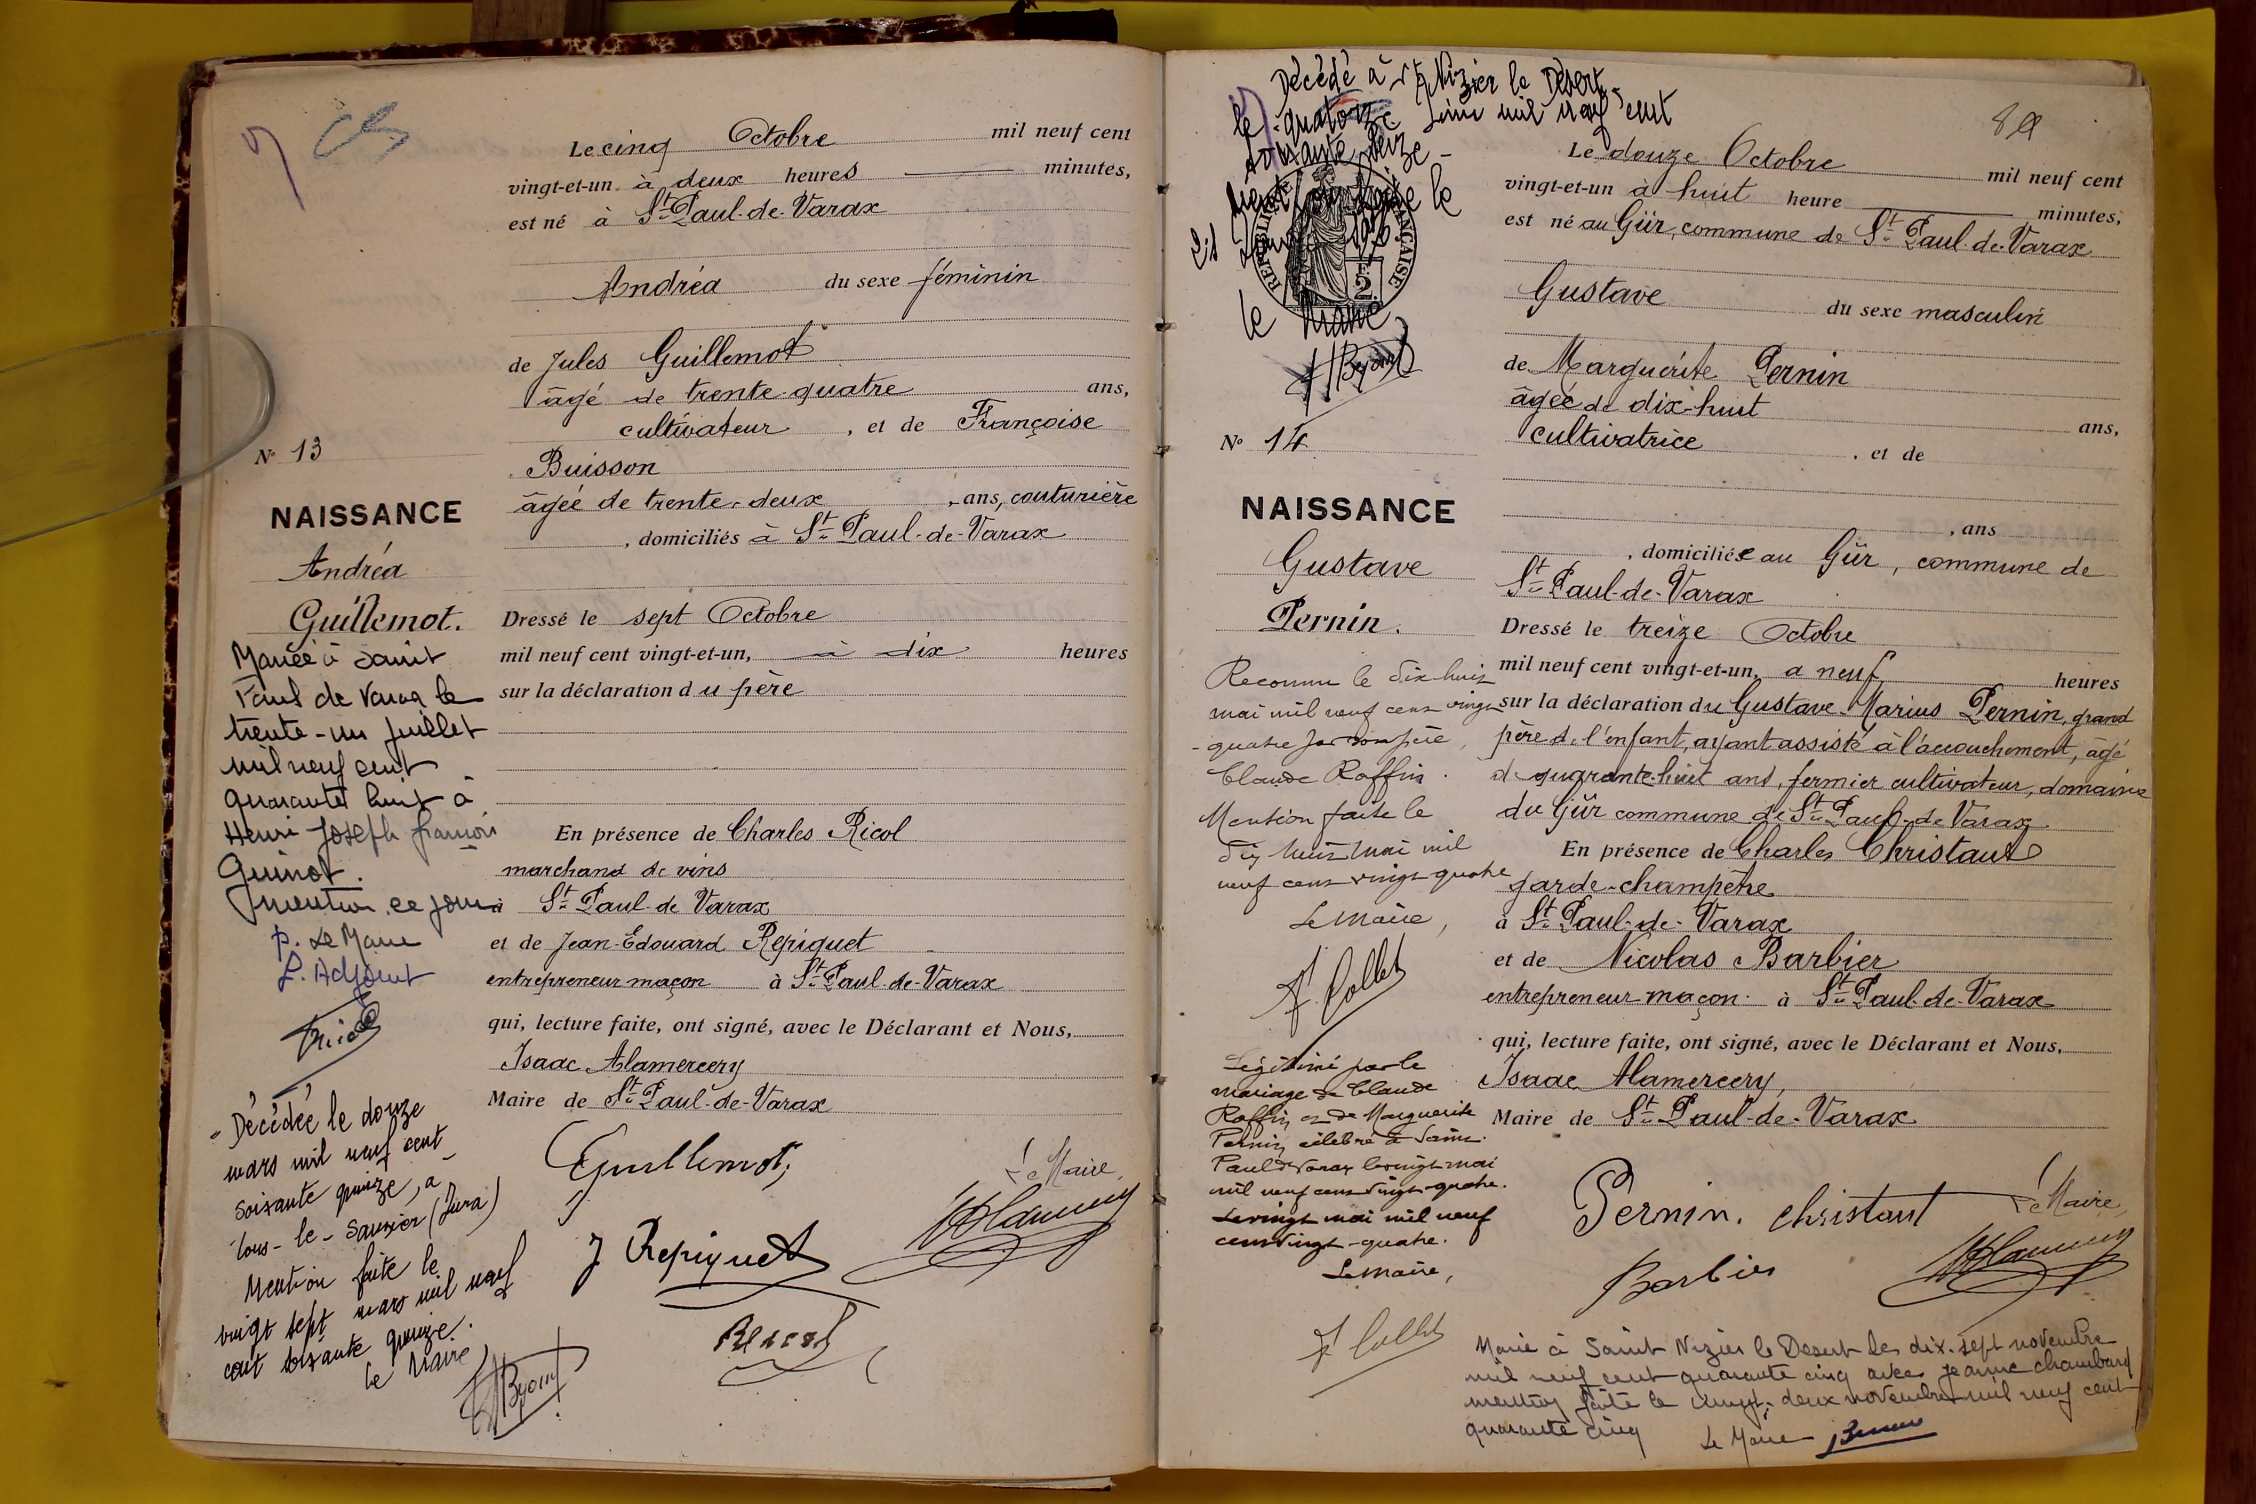 Le cinq Octobre mil neuf cent
vingt-et-un à deux heures minutes,
est né à St Paul-de-Varax
Andréa du sexe féminin
de Jules Guillemot
âgé de trente-quatre ans,
cultivateur, et de Françoise
Buisson
âgée de trente-deux, ans, couturière
, domiciliés à St Paul-de-Varax
Dressé le sept Octobre
mil neuf cent vingt-et-un, à dix heures
sur la déclaration du père
En présence de Charles Ricol
marchand de vins
à St Paul-de Varax
et de Jean-Edouard Repiquet
entrepreneur maçon à St Paul-de-Varax
qui, lecture faite, ont signé, avec le Déclarant et Nous,
Isaac Alamercery
Maire de St Paul-de-Varax
Guillemot
Le Maire,
J Repiquet
No 13
NAISSANCE
Andréa
Guillemot.
Mariée à Saint
Paul de Varax le
trente-un juillet
mil neuf cent
quarante huit à
Henri Joseph françois
Guinot.
mention ce jour
p. Le Maire
L. Adjoint
Décédée le douze
mars mil neuf cent
soixante quinze, à
Lons-le-Saunier (Jura)
Mention faite le
vingt sept mars mil neuf
cent soixante quinze.
le Maire
Décédé à St Nizier le Désert
le quatorze Juin mil neuf cent
soixante seize
le
le Maire
RÉPUBLIQUE FRANÇAISE
2
No 14
NAISSANCE
Gustave
Pernin.
Reconnu le dix huit
mai mil neuf cent vingt
-quatre par son père,
Claude Roffin.
Mention faite le
dix huit mai mil
neuf cent vingt quatre
Le Maire,
F. Collet
Légitimé par le
mariage de Claude
Roffin et de Marguerite
Pernin célébré à Saint
Paul de Varax le vingt mai
mil neuf cent vingt-quatre.
Le vingt mai mil neuf
cent vingt-quatre.
Le Maire,
F. Collet
Le douze Octobre mil neuf cent
vingt-et-un à huit heure minutes,
est né au Gür, commune de St Paul-de-Varax
Gustave du sexe masculin
de Marguerite Pernin
âgée de dix-huit ans,
cultivatrice, et de
, ans
, domiciliée au Gür, commune de
St Paul-de-Varax
Dressé le treize Octobre
mil neuf cent vingt-et-un, a neuf heures
sur la déclaration du Gustave-Marius Pernin, grand
père de l'enfant, ayant assisté à l'accouchement, âgé
de quarante-huit ans, fermier cultivateur, domaine
du Gür commune de St Paul-de-Varax
En présence de Charles Christaut
garde-champêtre
à St Paul-de-Varax
et de Nicolas Barbier
entrepreneur-maçon à St Paul-de-Varax
qui, lecture faite, ont signé, avec le Déclarant et Nous,
Isaac Alamercery,
Maire de St Paul-de-Varax
Pernin. Christaut
Le Maire,
Barbier
Marié à Saint Nizier le Desert le dix-sept novembre
mil neuf cent quarante cinq avec Jeanne Chambard
mention faite le vingt-deux novembre mil neuf cent
quarante cinq Le Maire